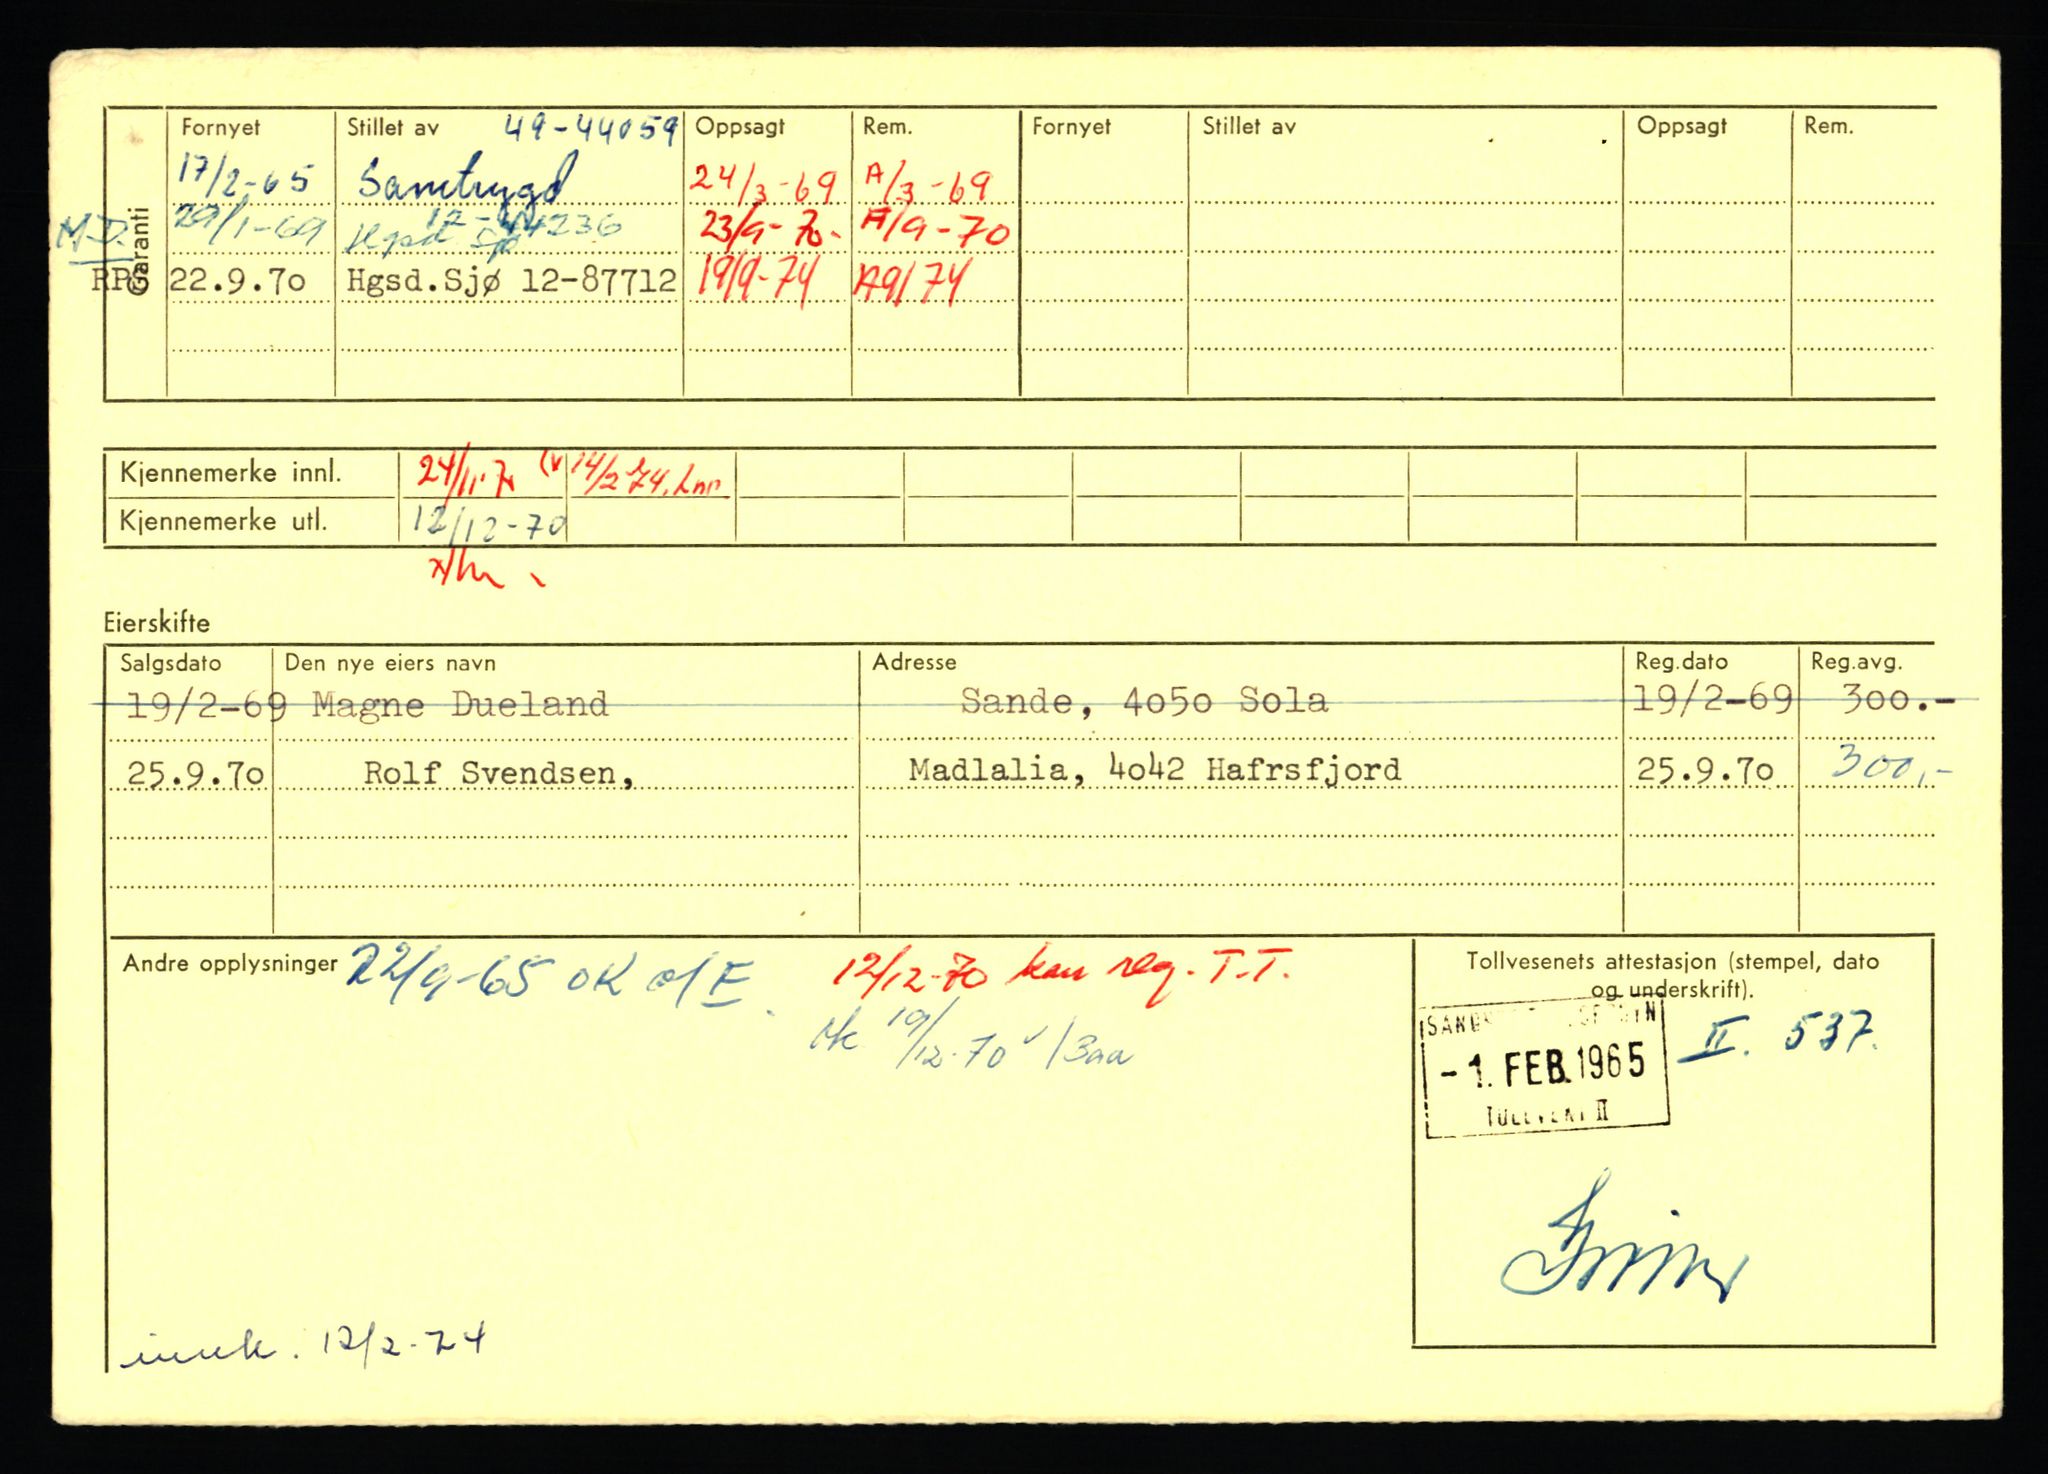 Garanti
Fornyet Stillet av 49-44059 Oppsagt Rem. Fornyet Stillet av Oppsagt Rem.
17/2-65 Samtrygd 24/3-69 A/3-69
M.D. 29/1-69 Hgsd Sjø 12-44236 23/9-70. A/9-70
RPS 22.9.7o Hgsd.Sjø 12-87712 19/9-74 A9/74
Kjennemerke innl. 24/11.7 14/2-74.
Kjennemerke utl. 12/12-70
Eierskifte
Salgsdato Den nye eiers navn Adresse Reg.dato Reg.avg.
19/2-69 Magne Dueland Sande, 4o5o Sola 19/2-69 3oo.-
25.9.7o Rolf Svendsen, Madlalia, 4o42 Hafrsfjord 25.9.7o 300,-
Andre opplysninger 22/9-65 OK o/E 12/12-70 kan reg. T.T.
19/12-70
Tollvesenets attestasjon (stempel, dato
og underskrift).
- 1. FEB. 1965
II. 537.
innk. 12/2-74